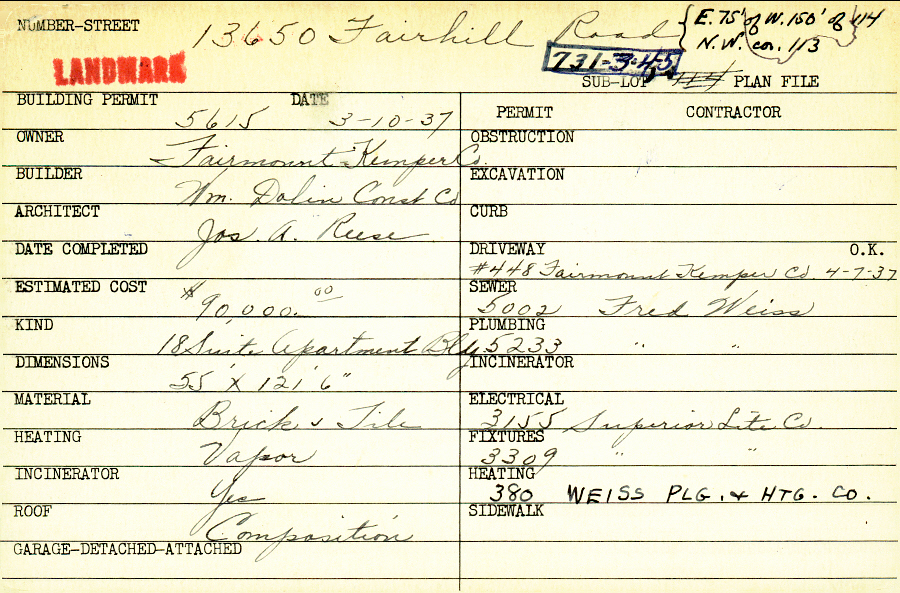 NUMBER-STREET 13650 Fairhill Road { E. 75' of W. 150' of 114
N.W. cor. 113 }
LANDMARK 731-3-45
SUB-LOT 114 PLAN FILE
BUILDING PERMIT DATE PERMIT CONTRACTOR
5615 3-10-37
OWNER OBSTRUCTION
Fairmount-Kemper Co.
BUILDER EXCAVATION
Wm. Dolin Const Co
ARCHITECT CURB
Jos. A. Reese
DATE COMPLETED DRIVEWAY O.K.
#448 Fairmount Kemper Co. 4-7-37
ESTIMATED COST SEWER
$90,000.00 5002 Fred Weiss
KIND PLUMBING
18 Suite Apartment Bldg 5233 " "
DIMENSIONS INCINERATOR
55' X 121' 6"
MATERIAL ELECTRICAL
Brick & Tile 3155 Superior Lite Co.
HEATING FIXTURES
Vapor 3309 " "
INCINERATOR HEATING
Yes 380 WEISS PLG. & HTG. CO.
ROOF SIDEWALK
Composition
GARAGE-DETACHED-ATTACHED